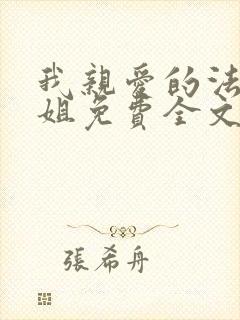 我親愛的法
姐免費全文
張希舟